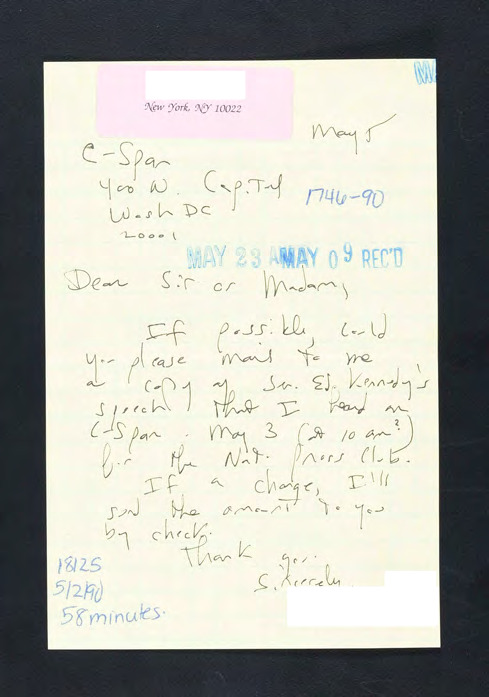 New York, NY 10022
May 5
C-Span
400 N. Capitol
Wash DC
20001
1746-90
MAY 23 A
MAY 09 REC'D
Dear Sir or Madam,
If possible, could
you please mail to me
a copy of Sen. Ed. Kennedy's
speech that I heard on
C-Span. May 3 (at 10 am?)
for the Nat. Press Club.
If a charge, I'll
send the amount to you
by check.
Thank you.
Sincerely
18125
5/2/90
58 minutes.